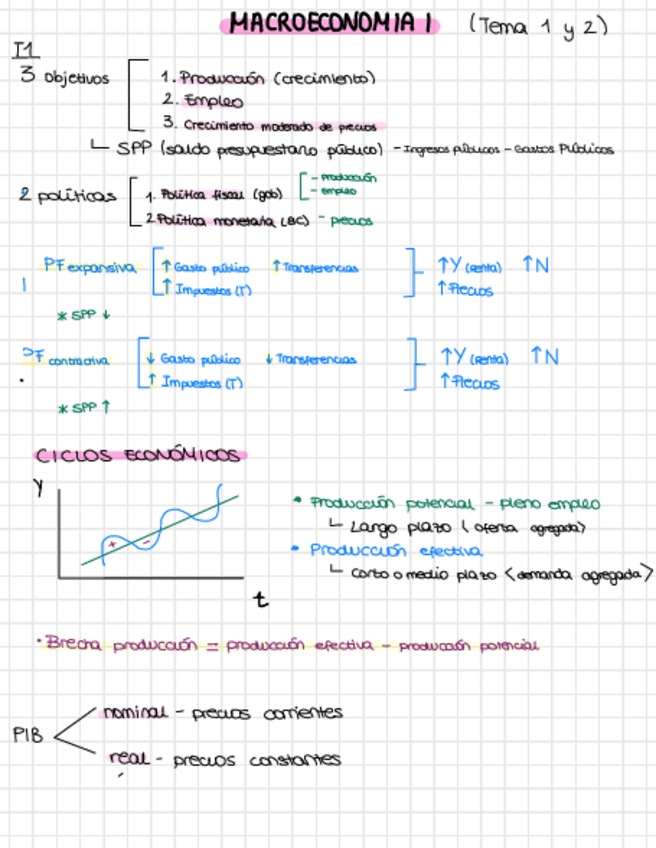 MACROECONOMIA I (Tema 1 y 2)
T1
3 objetivos
1. Producción (crecimiento)
2. Empleo
3. Crecimiento moderado de precios
SPP (saldo presupuestario público) - Ingresos públicos - Gastos Públicos
2 políticas
1. Política fiscal (gob)
- producción
- empleo
2. Política monetaria (BC) - precios
PF expansiva
↑ Gasto público ↑ Transferencias
↑ Impuestos (T)
↑Y (renta) ↑N
↑ Precios
* SPP ↓
PF contractiva
↓ Gasto público ↓ Transferencias
↑ Impuestos (T)
↑Y (renta) ↑N
↑ Precios
* SPP ↑
CICLOS ECONÓMICOS
Y
+ -
t
• Producción potencial - pleno empleo
Largo plazo (oferta agregada)
• Producción efectiva
corto o medio plazo <demanda agregada>
· Brecha producción = producción efectiva - producción potencial
PIB
nominal - precios corrientes
real - precios constantes